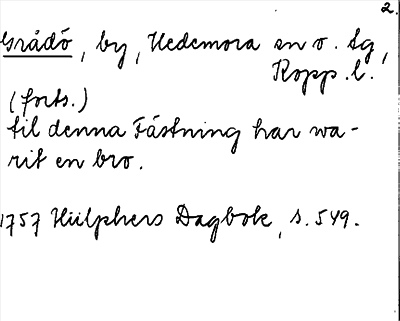 2.
Grådö, by, Hedemora sn o. tg,
Kopp. l.
(forts.)
til denna Fästning har wa-
rit en bro.
1757 Hülphers Dagbok, s. 549.